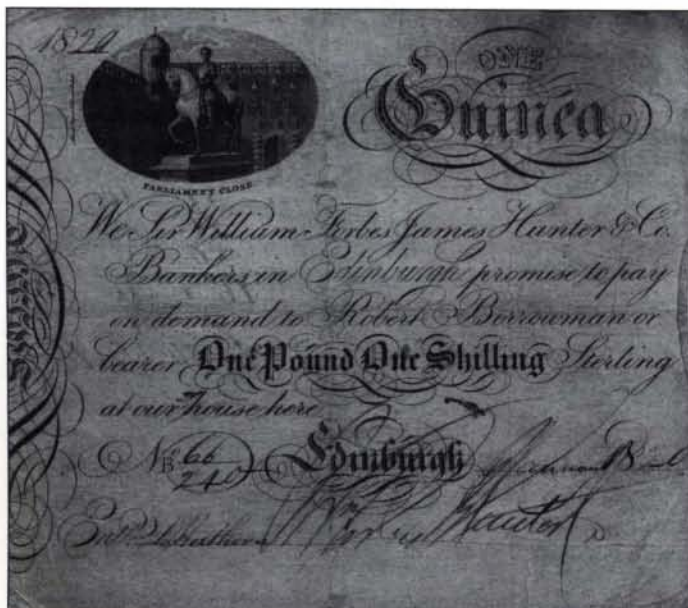 ONE
Guinea
PARLIAMENT CLOSE
We Sir William Forbes James Hunter & Co.
Bankers in Edinburgh promise to pay
on demand to Robert Borrowman or
bearer One Pound One Shilling Sterling
at our house here
No. B 66/240 Edinburgh